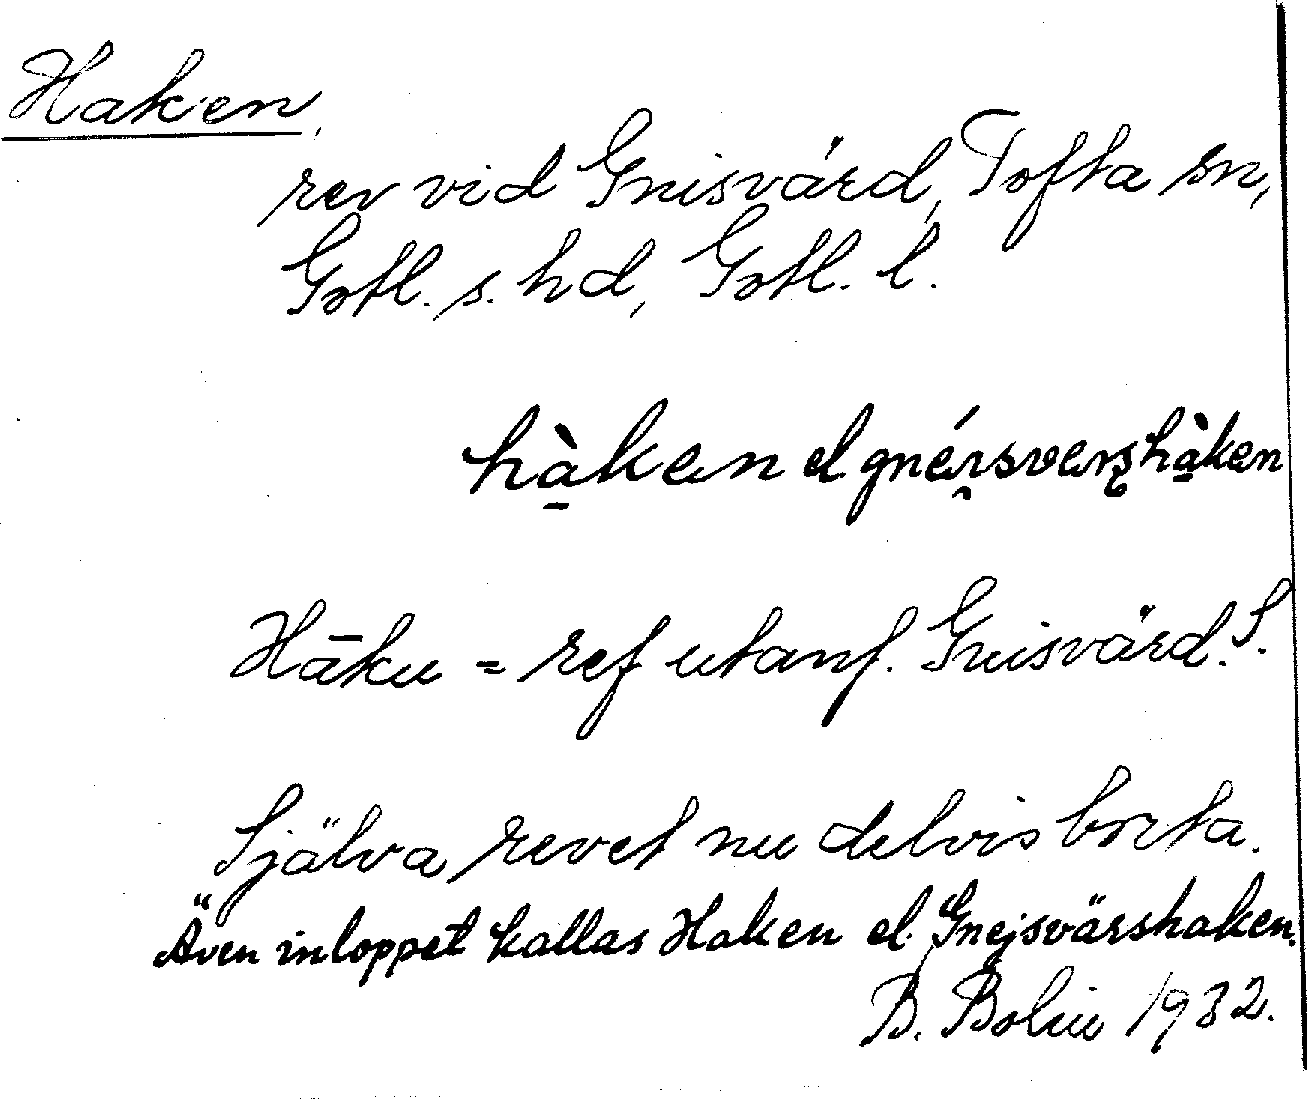 Haken,
rev vid Gnisvärd, Tofta sn,
Gotl. s. hd, Gotl. l.
hà̠ken el gnérsvers hà̠ken
Hāku = ref utanf. Gnisvärd. S.
Själva revet nu delvis borta.
Även inloppet kallas Haken el. Gnejsvärshaken.
B. Bolin 1932.